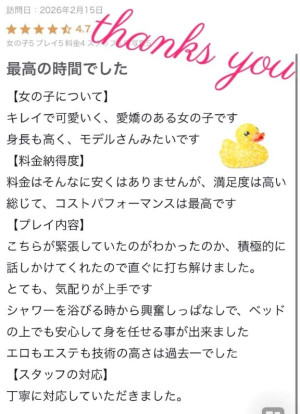 訪問日：2026年2月15日
thanks you
4.7
女の子5 プレイ5 料金4 ス
最高の時間でした
【女の子について】
キレイで可愛いく、愛嬌のある女の子です
身長も高く、モデルさんみたいです
【料金納得度】
料金はそんなに安くはありませんが、満足度は高い
総じて、コストパフォーマンスは最高です
【プレイ内容】
こちらが緊張していたのがわかったのか、積極的に
話しかけてくれたので直ぐに打ち解けました。
とても、気配りが上手です
シャワーを浴びる時から興奮しっぱなしで、ベッド
の上でも安心して身を任せる事が出来ました
エロもエステも技術の高さは過去一でした
【スタッフの対応】
丁寧に対応していただきました。